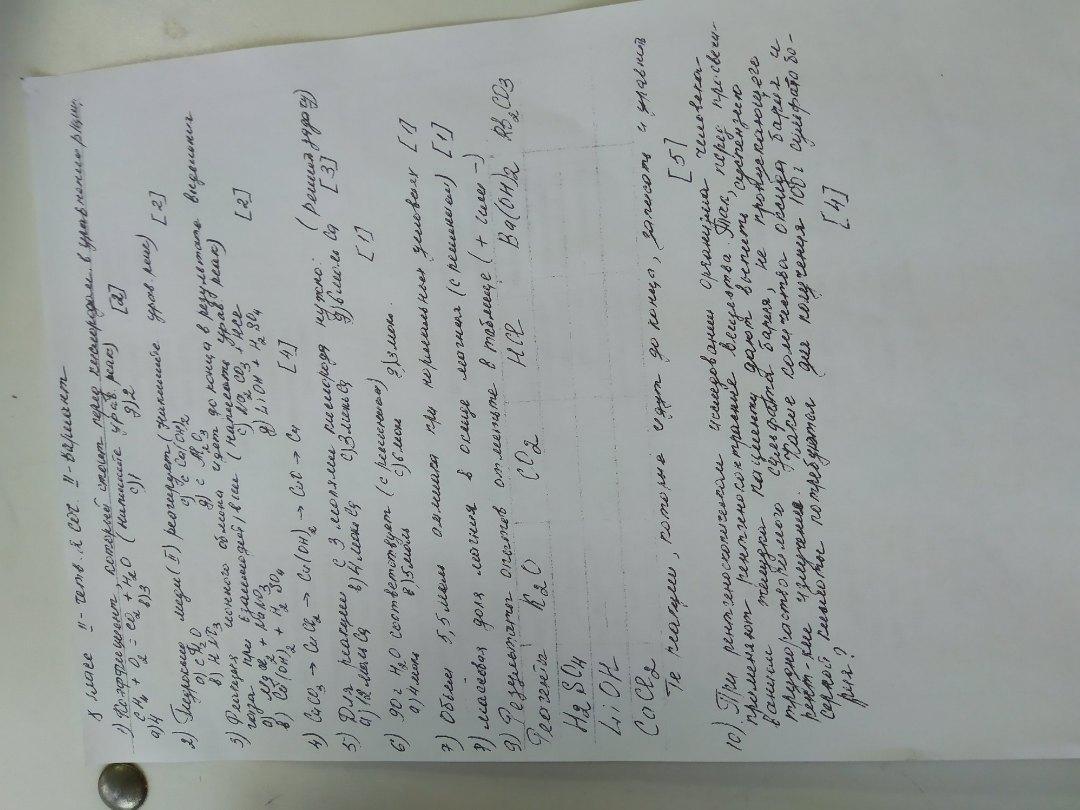 8 класс II- четв. к СОЧ. II-вариант
1) Коэффициент, который стоит перед кислородом в уравнении реакц.
CH4 + O2 = CO2 + H2O (напишите урав реак) [2]
а)4 в)3 с)1 д)2
2) Гидроксид меди (II) реагирует (напишите урав реак) [2]
а) с H2O с) с Ca(OH)2
в) HNO3 д) с Al2O3
3) Реакция ионного обмена идет до конца в результате выделения
газа при взаимодействии (написать урав реак) [2]
а) MgCl2 + NaNO3 с) Na2CO3 + HCl
в) Ca(OH)2 + H2SO4 д) LiOH + H2SO4
4) CuCO3 → CuCl2 → Cu(OH)2 → CuO → Cu [4]
5) Для реакции с 3 молями кислорода нужно: (реши задачу)
а)12 моль Ca в)4 моль Ca с)3 моль Ca д)6 моль Ca [3]
6) 90 г H2O соответствует (с решением) [1]
а)4 моль в)5 моль с)6 моль д)3 моль
7) Объем 5,5 моль аммиака при нормальных условиях [1]
8) массовая доля магния в оксиде магния (с решением) [1]
9) Результат опытов отметьте в таблице (+ или -)
Реагенты K2O CO2 HCl Ba(OH)2 Rb2CO3
H2SO4
LiOH
CaCl2
Те реакции, которые идут до конца, записать и уравнять
[5]
10) При рентгеноскопическом исследовании организма человека
применяют рентгеноконтрастные вещества. Так, перед просвечи-
ванием желудка пациенту дают выпить суспензию
труднорастворимого сульфата бария, не пропускающего
рент-кие излучение. Какие количества оксида бария и
серной кислоты потребуются для получения 100 г сульфата ба-
рия? [4]